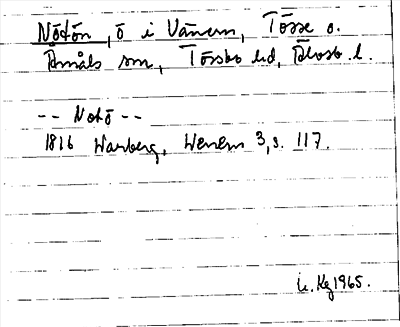 Nötön, ö i Vänern, Tösse o.
Åmåls sn, Tössbo hd, Älvsb. l.
-- Notö --
1816 Warberg, Wenern 3, s. 117.
u. Kg 1965.